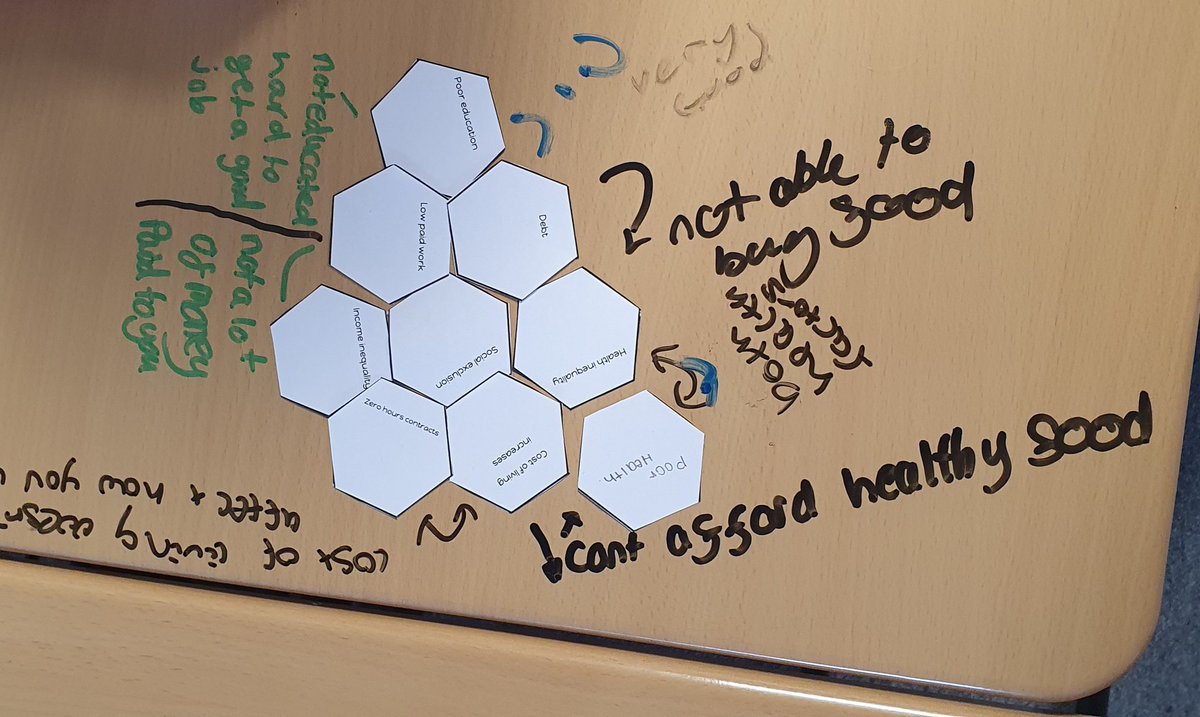 Poor education
Debt
Low paid work
Health inequality
Social exclusion
Income inequality
Zero hours contracts
Cost of living
increases
Poor
Health.
not educated
hard to
get a good
job
not a lot
of money
Paid to you
very
not able to
buy good
both
cant afford healthy good
cost of living doesn't
affect how you